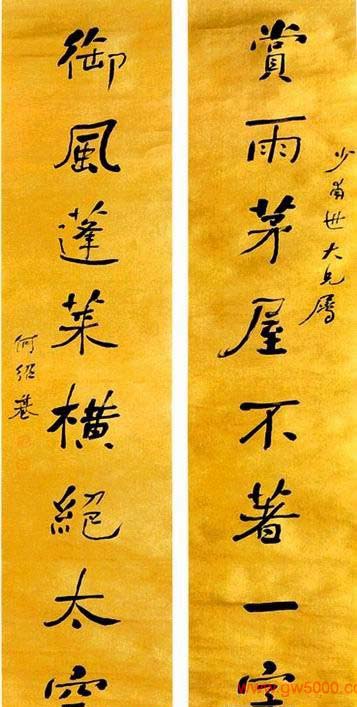 賞雨茅屋不著一字
少甫世大兄屬
御風蓬莱横絶太空
何紹基
www.gw5000.com